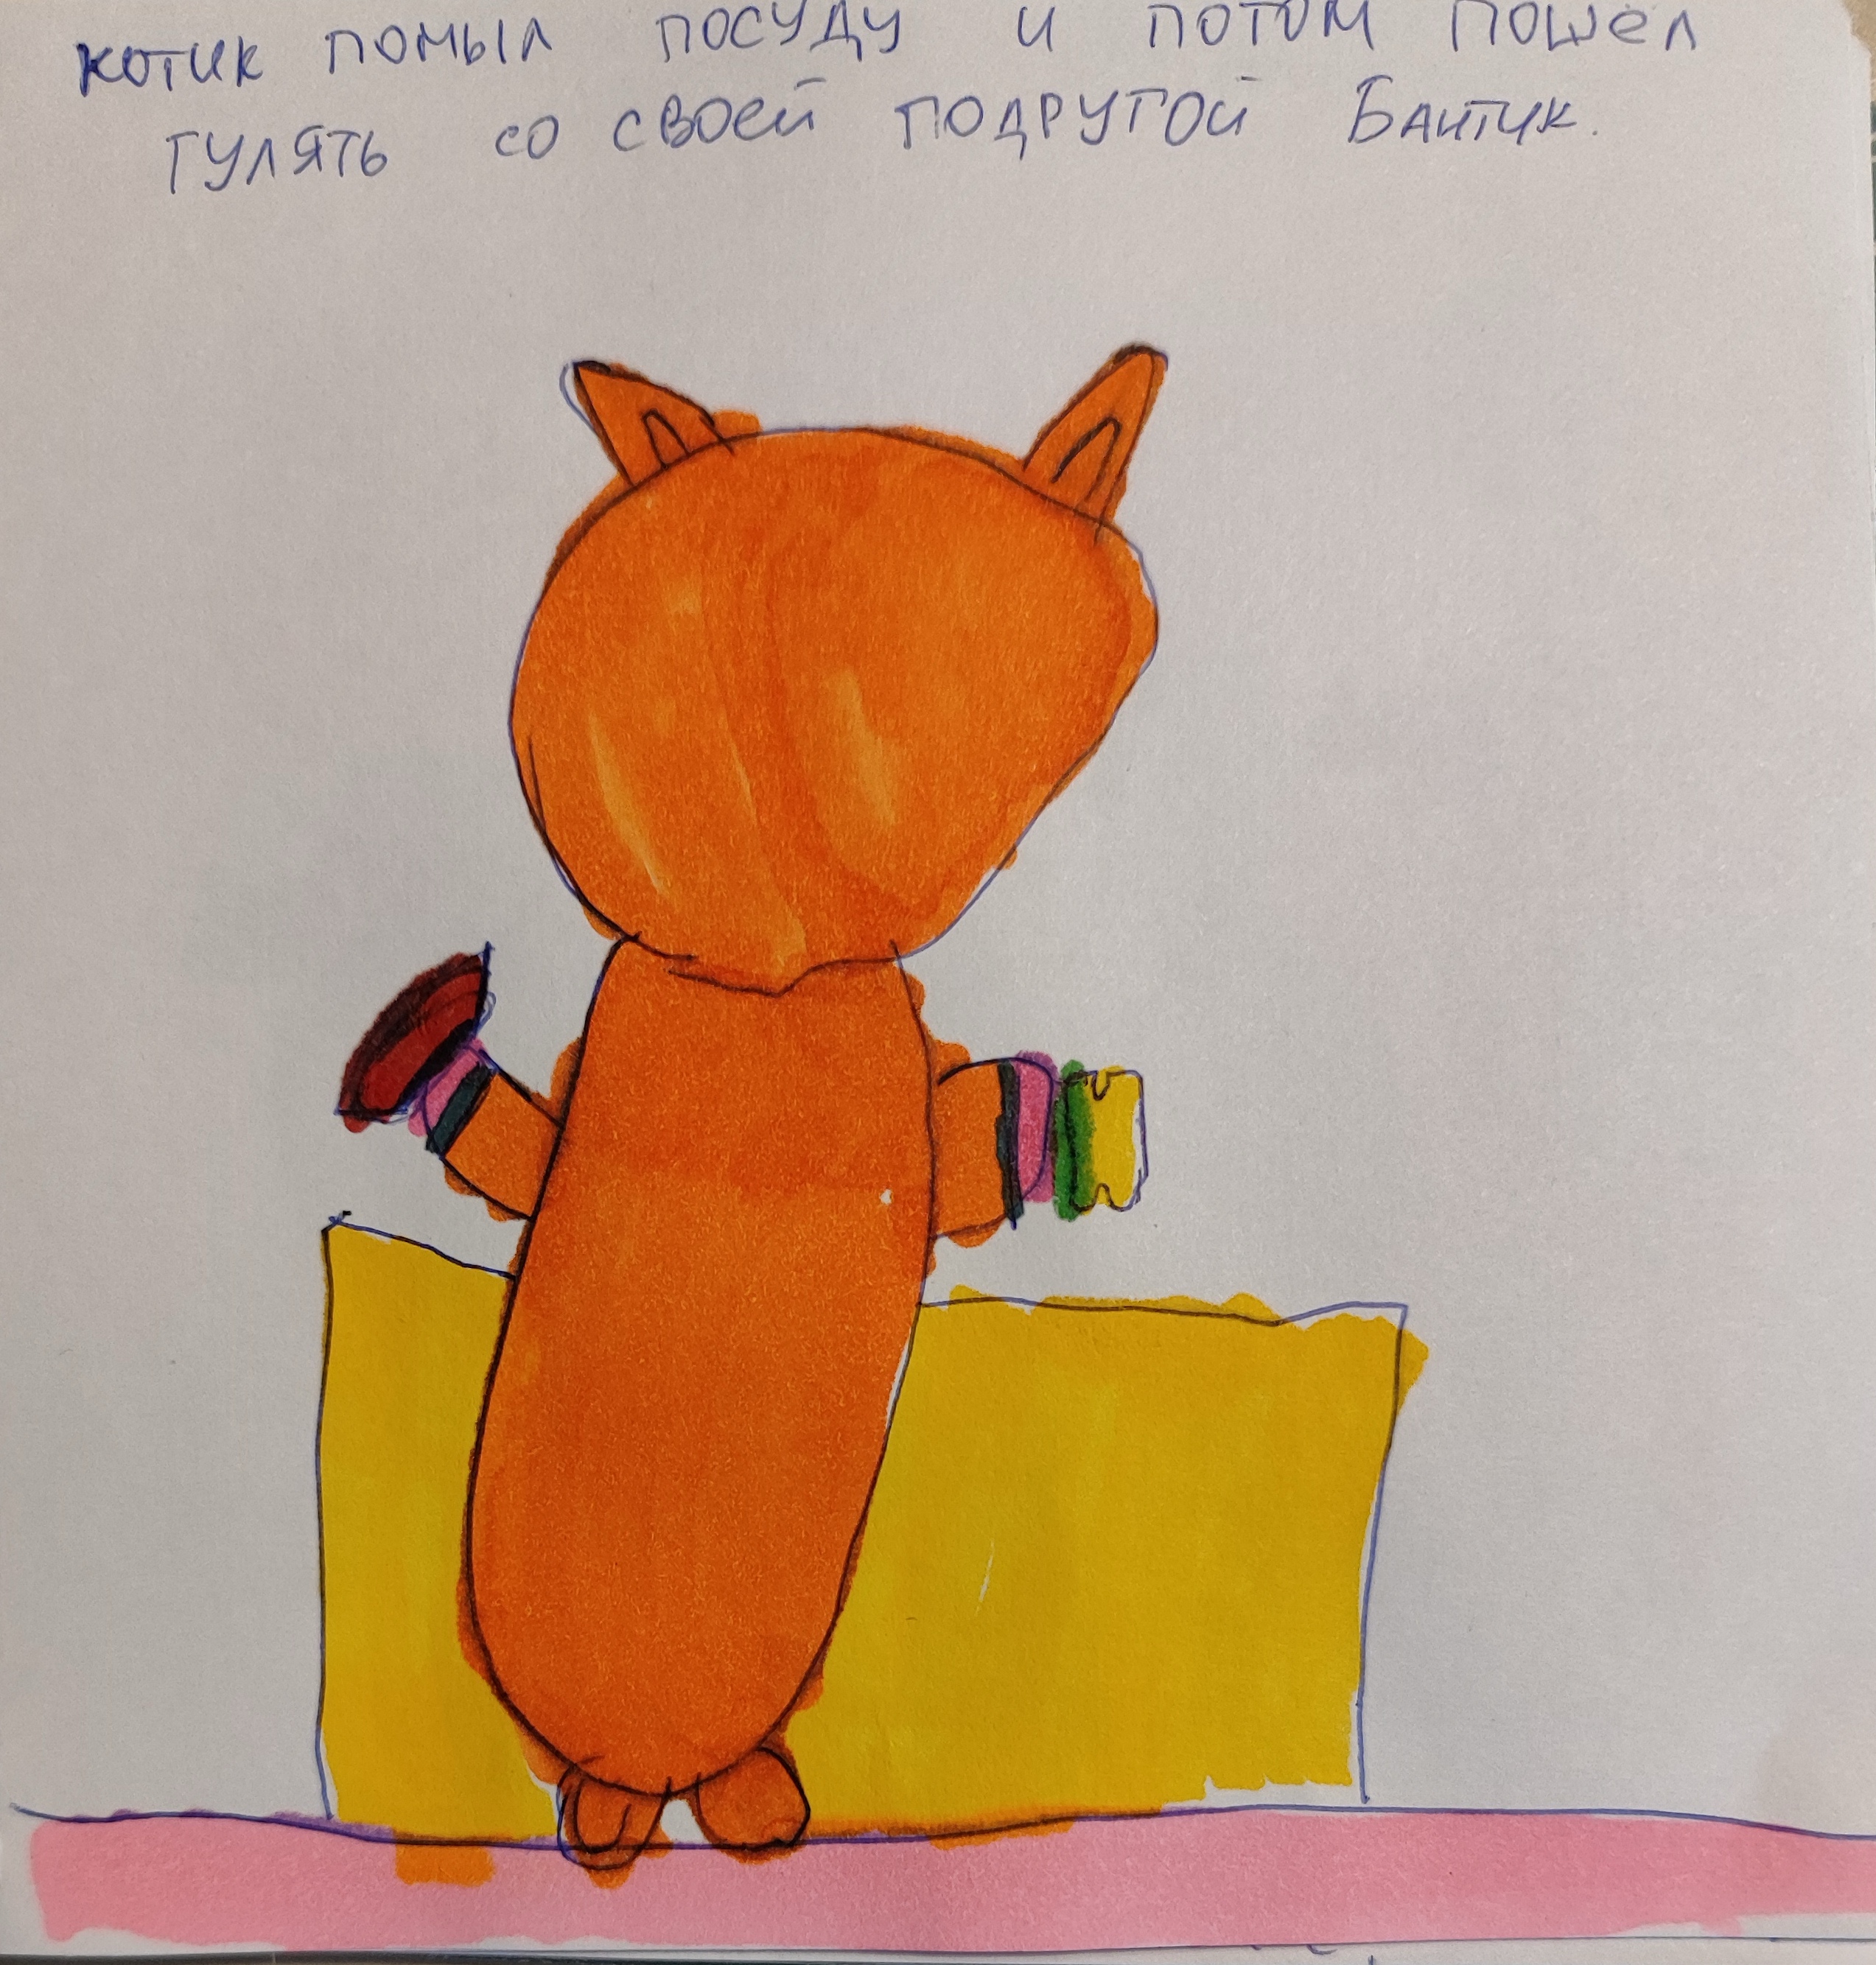 котик помыл посуду и потом пошёл
гулять со своей подругой Бантик.